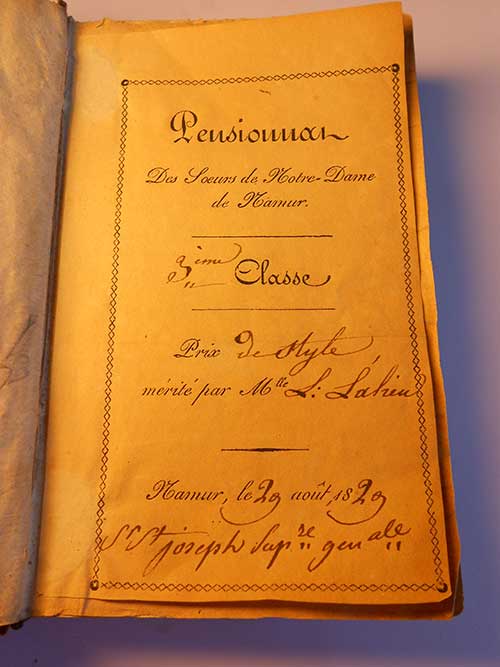 Pensionnat
Des Sœurs de Notre-Dame
de Namur.
3ème Classe
Prix de style
mérité par Mlle L: Lahieu
Namur, le 29 août, 1829
Sr St joseph Supre genale